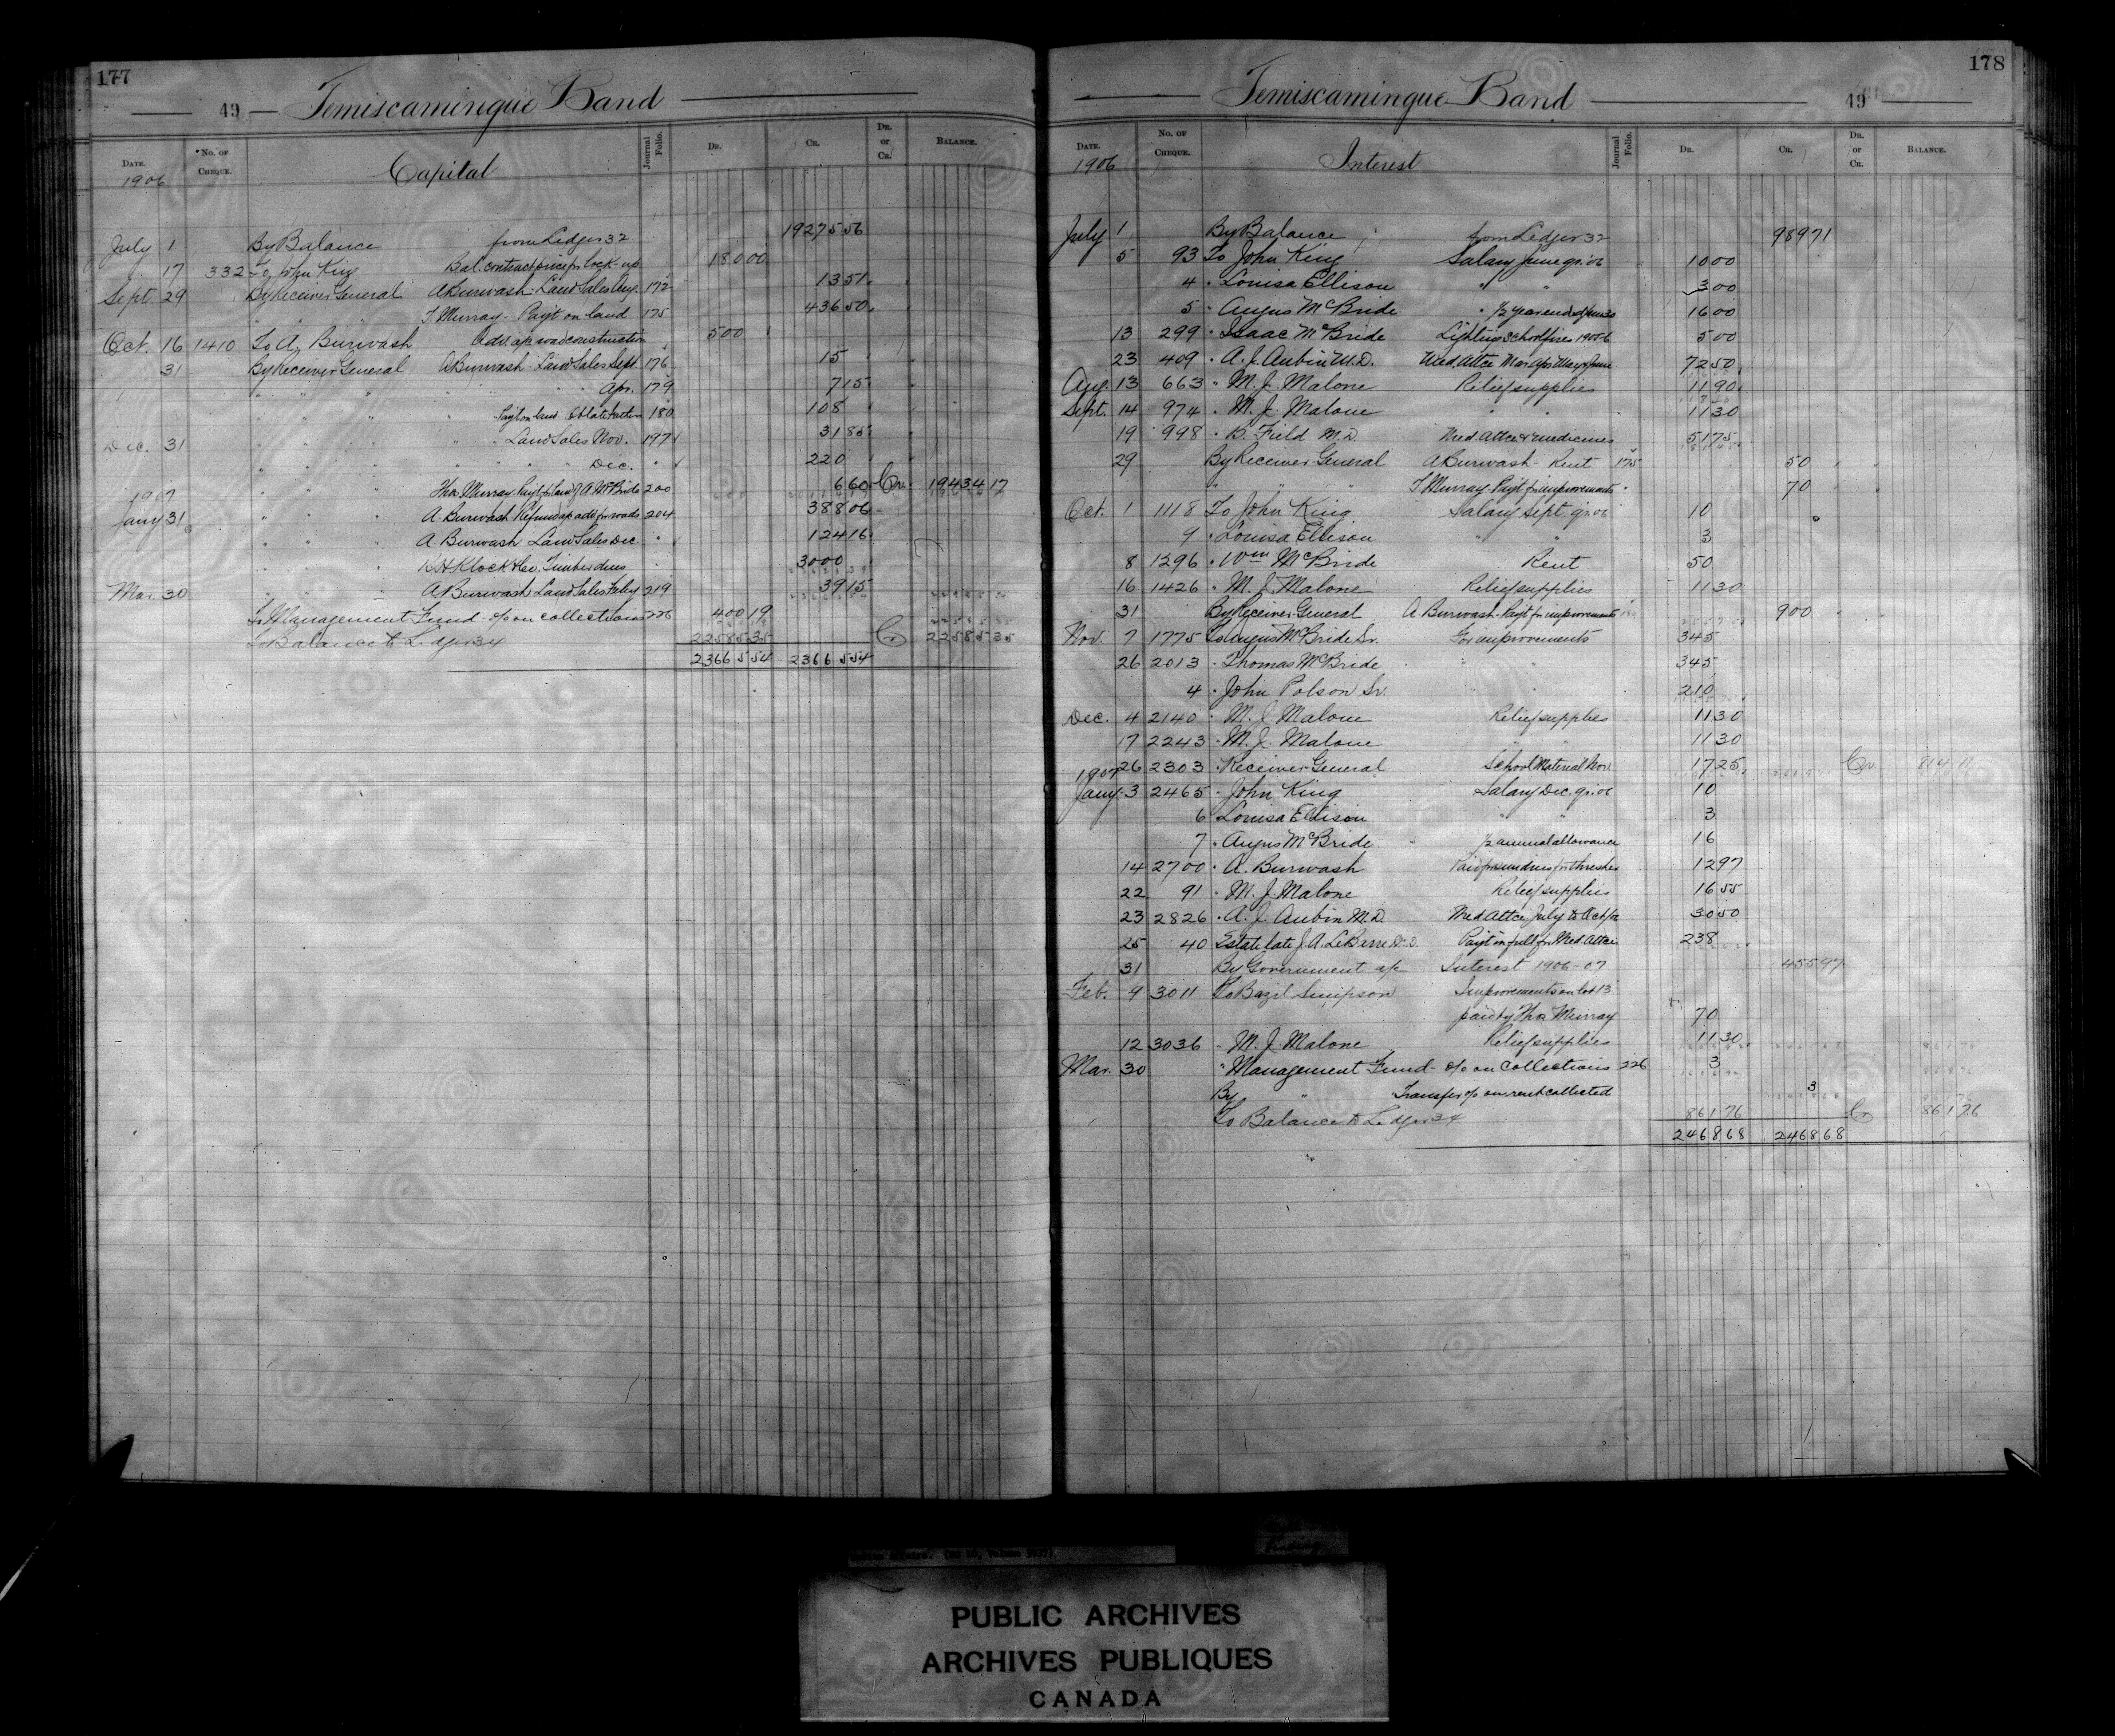 177
49 — Temiscamingue Band
DATE. No. OF CHEQUE. Capital Journal Folio. DR. CR. DR. or CR. BALANCE.
1906
July 1 By Balance from Ledger 32 19275 56
" 17 332 To John King Bal. contract price for lock-up 180 00
Sept. 29 By Receiver General A Burwash - Land Sales Aug. 172 13 51
" " " T Murray - Pay't on land 175 436 50
Oct. 16 1410 To A. Burwash Adv. a/c road construction 500
31 By Receiver General A Burwash - Land Sales Sept. 176 15
" " " " " Apr. 179 715
" " " " Pay't on land 180 108
Dec. 31 " " " " Land Sales Nov. 197 31 85
" " " " " " Dec. " 220
" " " Thos Murray Pay't for land of A McBride 200 660 Cr 19434 17
1907
Jany 31 " " " A. Burwash Refund a/c adv. for roads 204 388 06
" " " A Burwash Land Sales Dec. " 124 16
" " " R H Klock & Co. Timber dues " 3000
Mar. 30 " " " A Burwash Land Sales Feby 219 39 15
To Management Fund - o/o on collections 226 400 19
To Balance to Ledger 34 22585 35 Cr 22585 35
23665 54 23665 54
178
Temiscamingue Band — 49
DATE. No. OF CHEQUE. Interest Journal Folio. DR. CR. DR. or CR. BALANCE.
1906
July 1 By Balance from Ledger 32 989 71
5 93 To John King Salary June qr. 06 10 00
4 " Louisa Ellison " " 3 00
5 " Angus McBride " 1/2 year ended June 30 16 00
13 299 " Isaac McBride Lighting School fires 1905-6 5 00
23 409 " A. J. Aubin M.D. Med. Attce Mar Apr May & June 72 50
Aug. 13 663 " M. J. Malone Relief supplies 11 90
Sept. 14 974 " M. J. Malone " " 11 30
19 998 " B. Field M.D. Med. Attce & medicines 51 75
29 By Receiver General A Burwash - Rent 175 50
" " " T Murray Pay't for improvements " 70
Oct. 1 1118 To John King Salary Sept. qr. 06 10
9 " Louisa Ellison " " 3
8 1296 " Wm McBride Rent 50
16 1426 " M. J. Malone Relief supplies 11 30
31 By Receiver General A. Burwash - Pay't for improvements 900
Nov. 7 1775 To Angus McBride Sr. For improvements 345
26 2013 " Thomas McBride " " 345
4 " John Polson Sr. " " 210
Dec. 4 2140 " M. J. Malone Relief supplies 11 30
17 2243 " M. J. Malone " " 11 30
26 2303 " Receiver General School Material Nov. 17 25 Cr 814 11
1907
Jany 3 2465 " John King Salary Dec. qr. 06 10
6 Louisa Ellison " " 3
7 " Angus McBride 1/2 annual allowance 16
14 2700 " A. Burwash Paid for sundries for thresher 12 97
22 91 " M. J. Malone Relief supplies 16 55
23 2826 " A. J. Aubin M.D. Med Attce July to Oct 30 50
25 40 Estate late J. A. LeBerre M.D. Pay't in full for Med. Attce 238
31 By Government a/c Interest 1906-07 455 97
Feb. 9 3011 To Bazil Simpson Improvements on lot 13
paid by Thos Murray 70
12 3036 " M. J. Malone Relief supplies 11 30
Mar. 30 " Management Fund - o/o on Collections 226 3
By " Transfer o/o on rent collected 3
To Balance to Ledger 34 861 76 Cr 861 76
2468 68 2468 68
PUBLIC ARCHIVES
ARCHIVES PUBLIQUES
CANADA